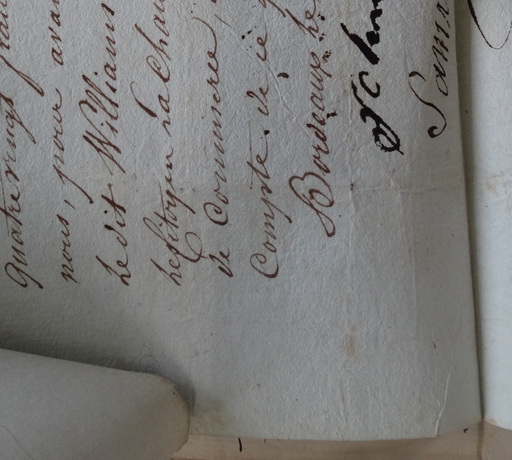 quatre vingt
nous, pour avan
Ledit Williams
le Citoyen La Chau
de Commerce
Compte de ce
Bordeaux le
John
Sam